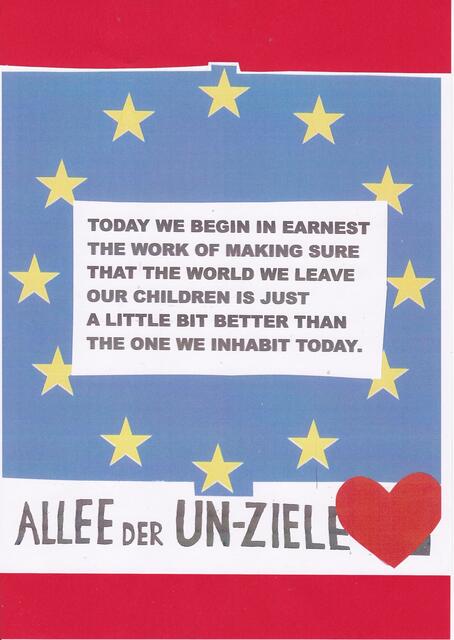 TODAY WE BEGIN IN EARNEST
THE WORK OF MAKING SURE
THAT THE WORLD WE LEAVE
OUR CHILDREN IS JUST
A LITTLE BIT BETTER THAN
THE ONE WE INHABIT TODAY.
ALLEE DER UN-ZIELE